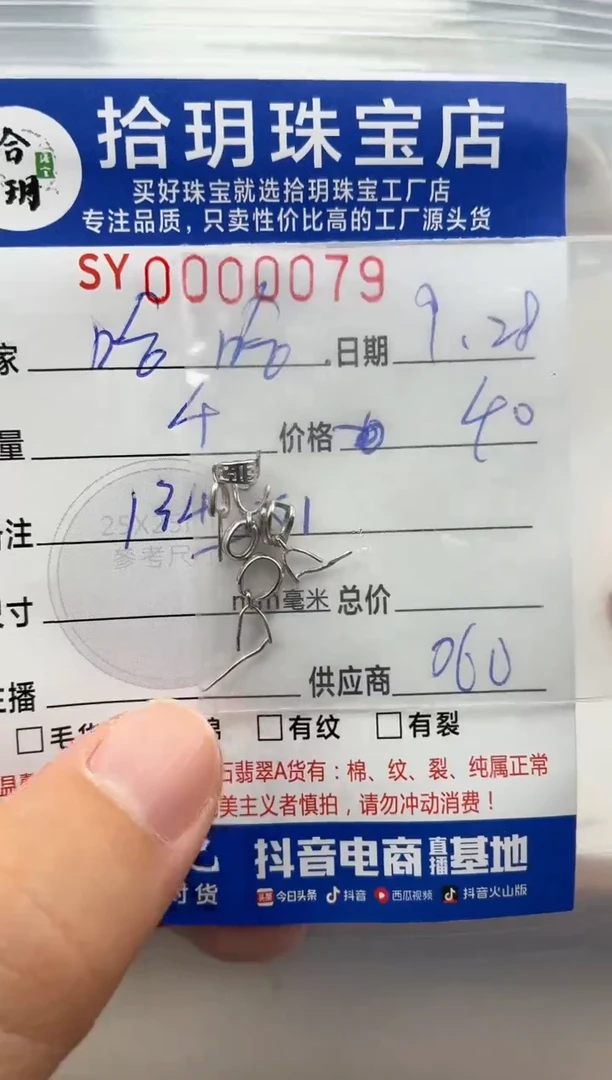 拾玥
珠宝
拾玥珠宝店
买好珠宝就选拾玥珠宝工厂店
专注品质，只卖性价比高的工厂源头货
SY0000079
家 哈哈 日期 9.28
量 4 价格 40
注 134 51
參考尺
寸 mm毫米 总价
主播 供应商 060
□毛 □有纹 □有裂
翡翠A货有：棉、纹、裂、纯属正常
美主义者慎拍，请勿冲动消费！
抖音电商直播基地
付货 头条 今日头条 抖音 西瓜视频 抖音火山版